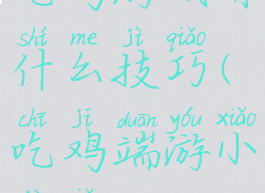 shí me jì qiǎo
什么技巧(
chī jī duān yóu xiǎo
吃鸡端游小